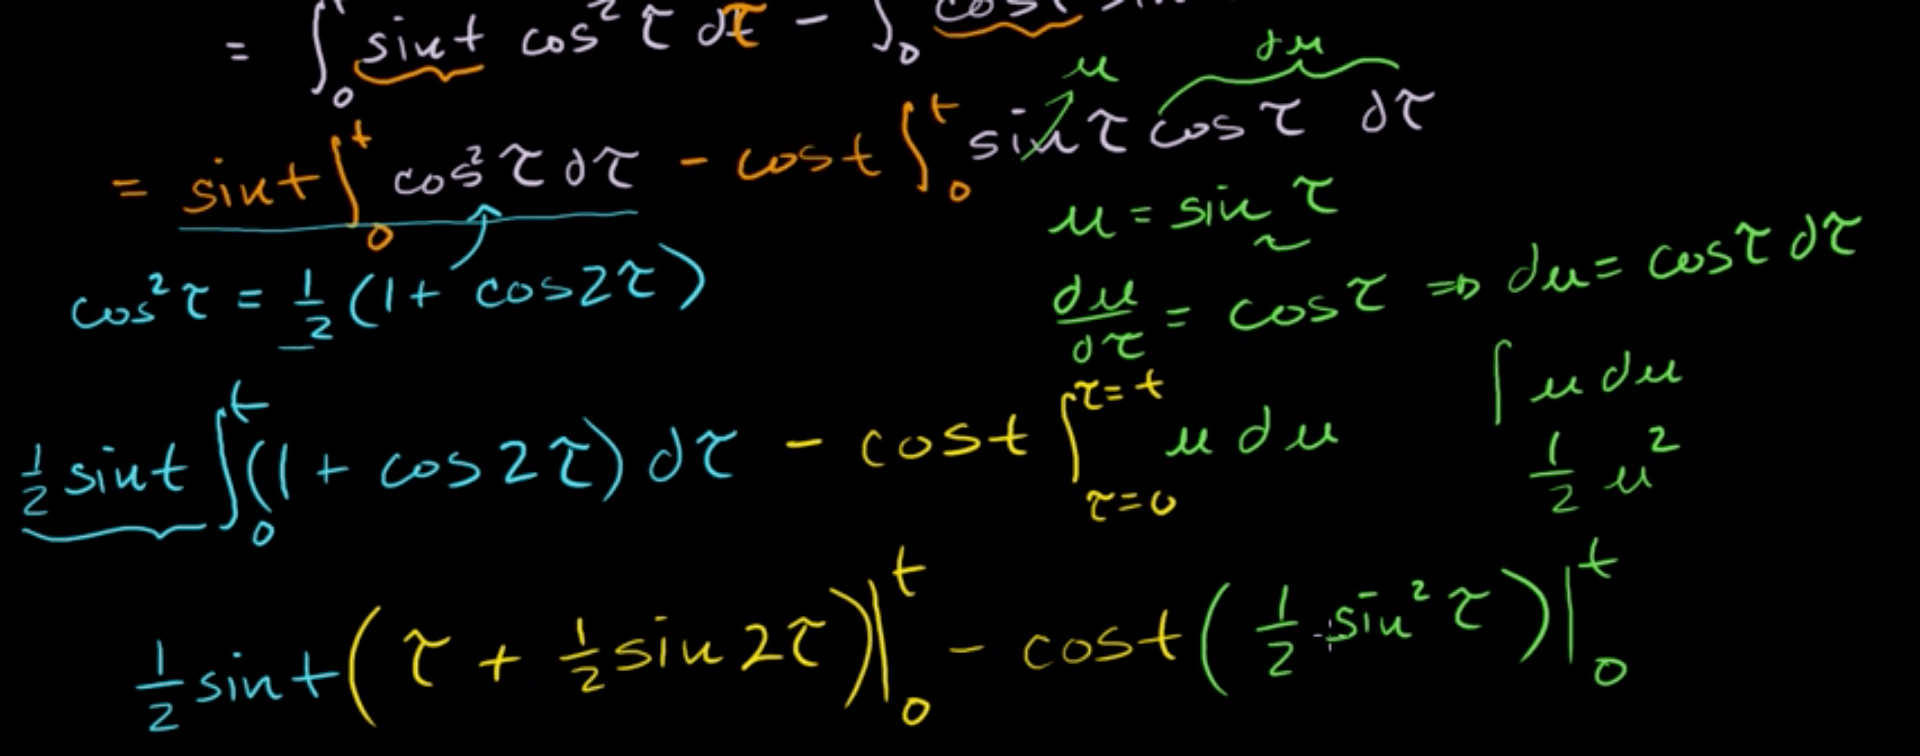 = ∫₀ sin t cos² τ dτ − ∫₀ cos
= sin t ∫₀ᵗ cos² τ dτ − cos t ∫₀ᵗ sin τ cos τ dτ
u
du
u = sin τ
cos² τ = 1/2 (1 + cos 2τ)
du/dτ = cos τ ⇒ du = cos τ dτ
∫ u du
1/2 u²
1/2 sin t ∫₀ᵗ (1 + cos 2τ) dτ − cos t ∫_{τ=0}^{τ=t} u du
1/2 sin t (τ + 1/2 sin 2τ)|₀ᵗ − cos t (1/2 sin² τ)|₀ᵗ